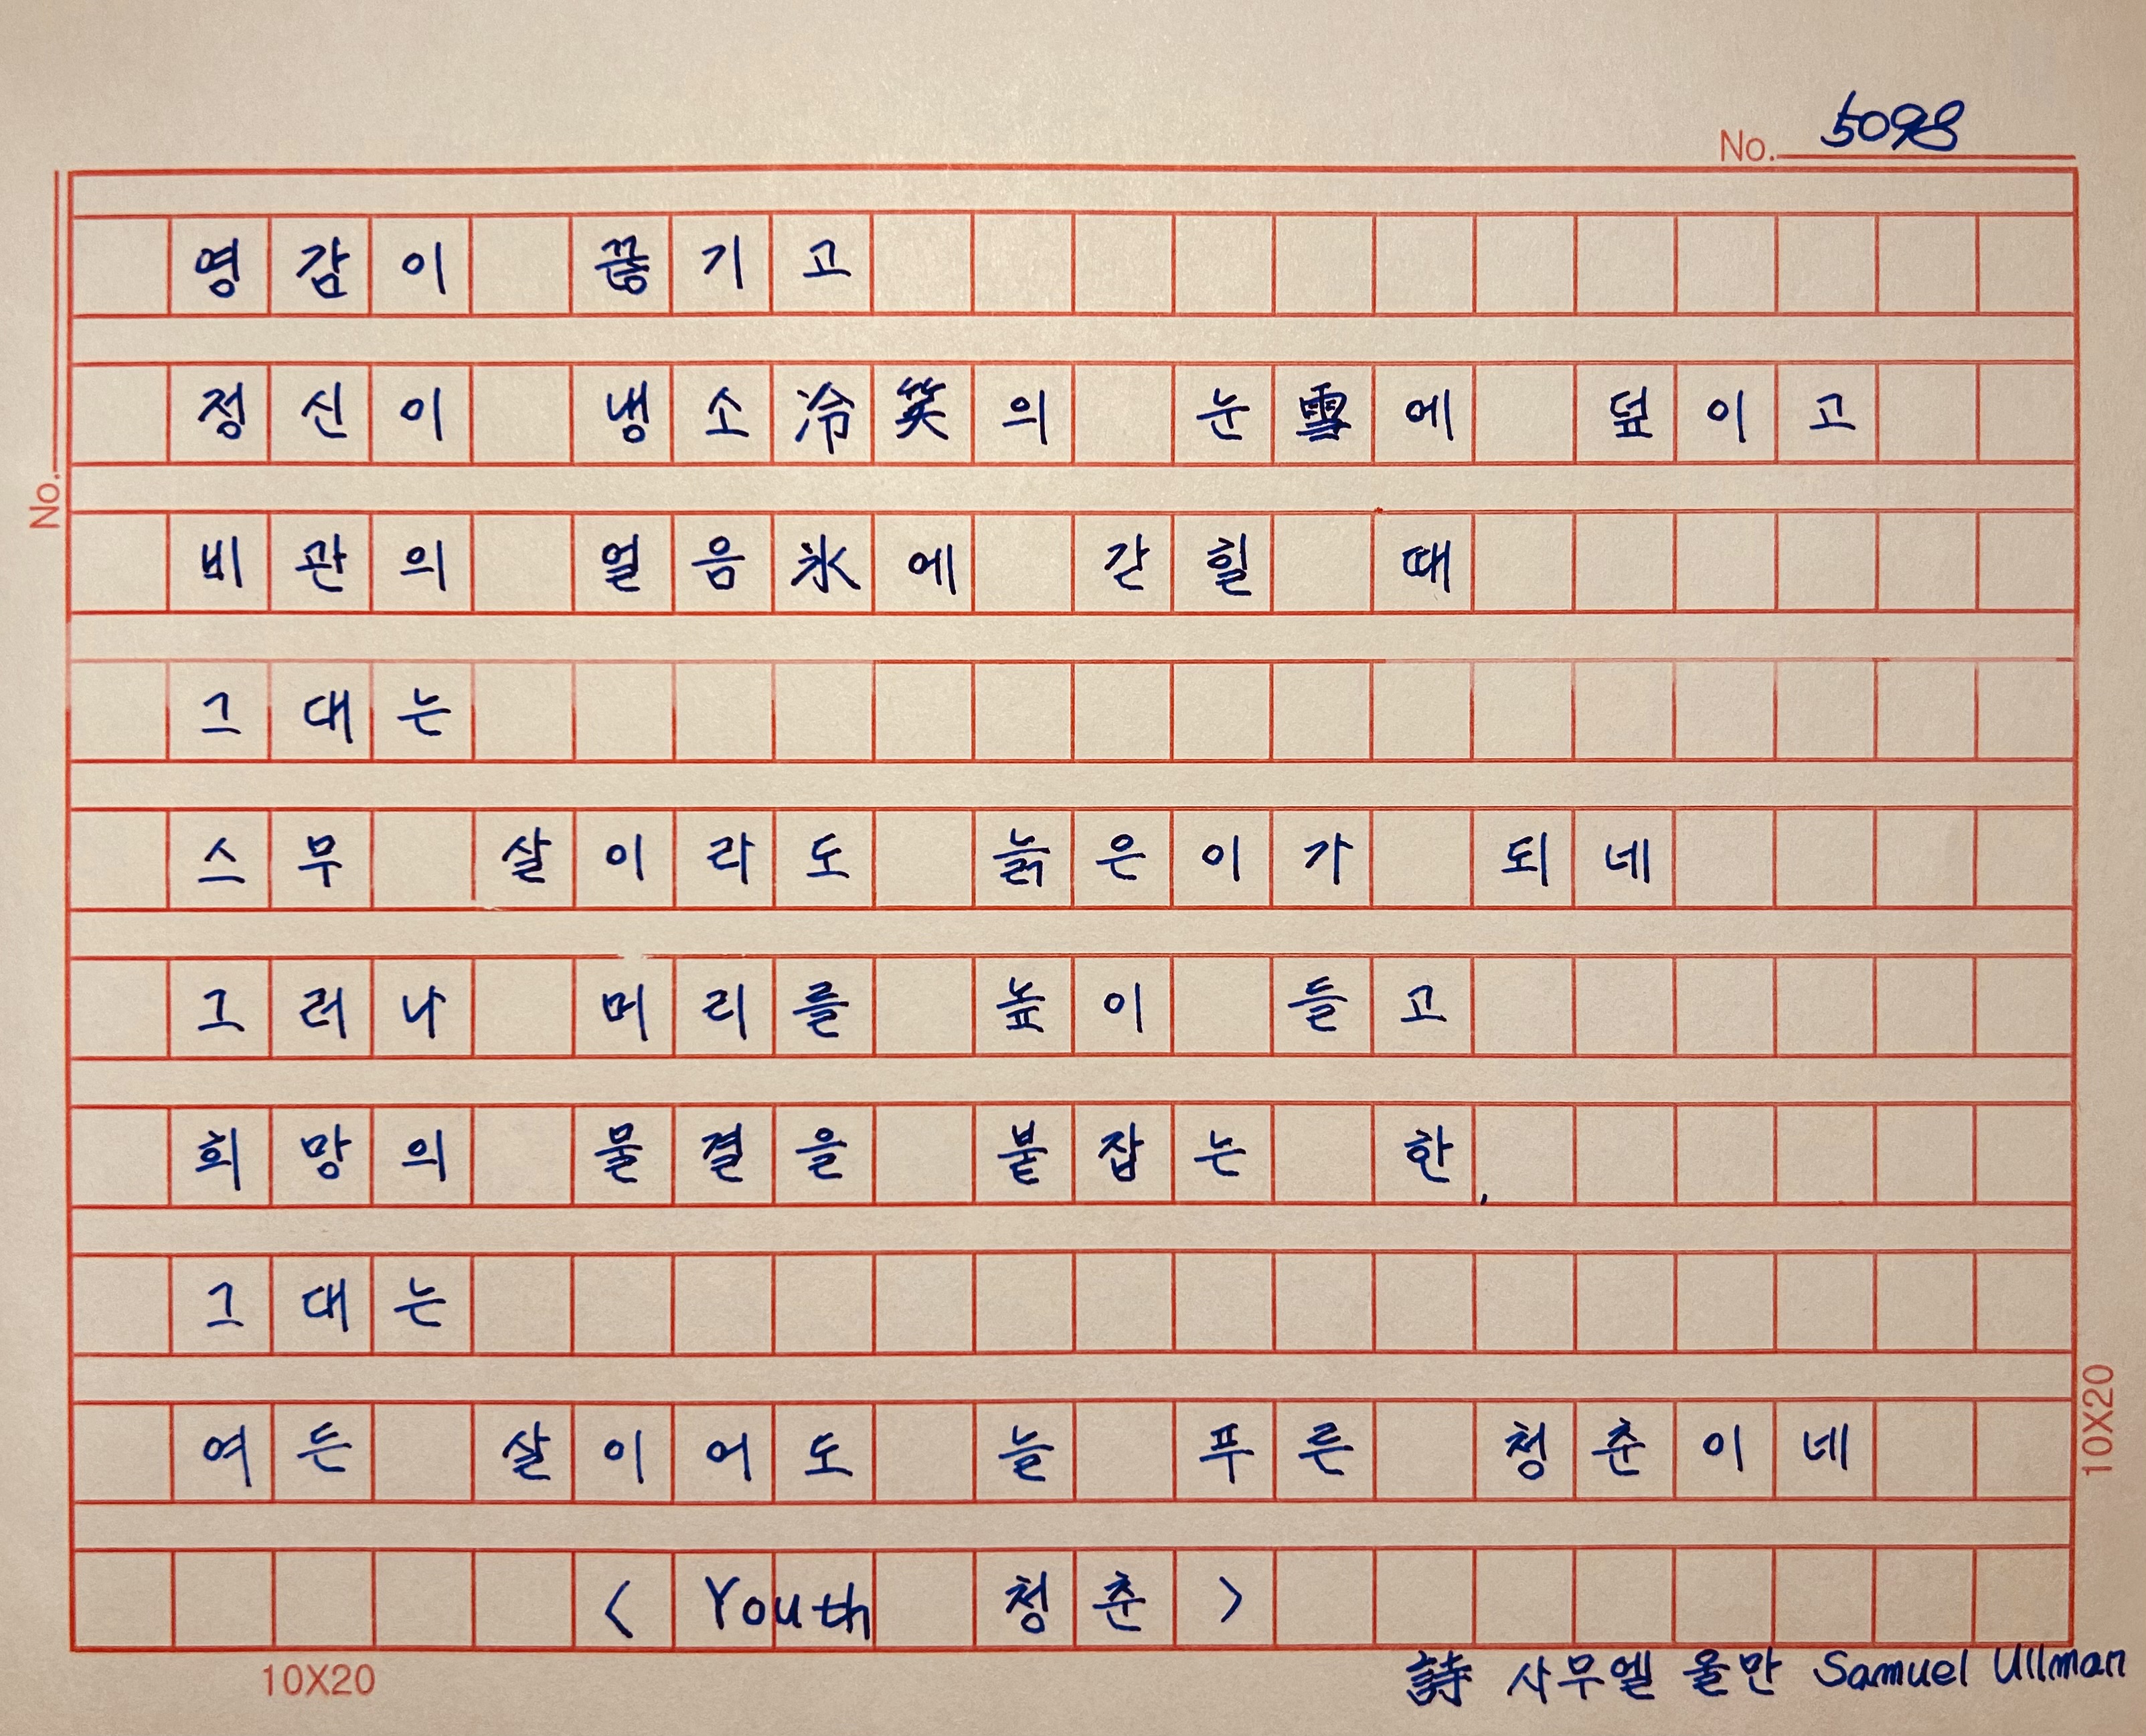 No. 5098
영감이 끊기고
정신이 냉소冷笑의 눈雪에 덮이고
비관의 얼음氷에 갇힐 때
그대는
스무 살이라도 늙은이가 되네
그러나 머리를 높이 들고
희망의 물결을 붙잡는 한,
그대는
여든 살이어도 늘 푸른 청춘이네
< Youth 청춘 >
詩 사무엘 울만 Samuel Ullman
10X20
No.
10X20